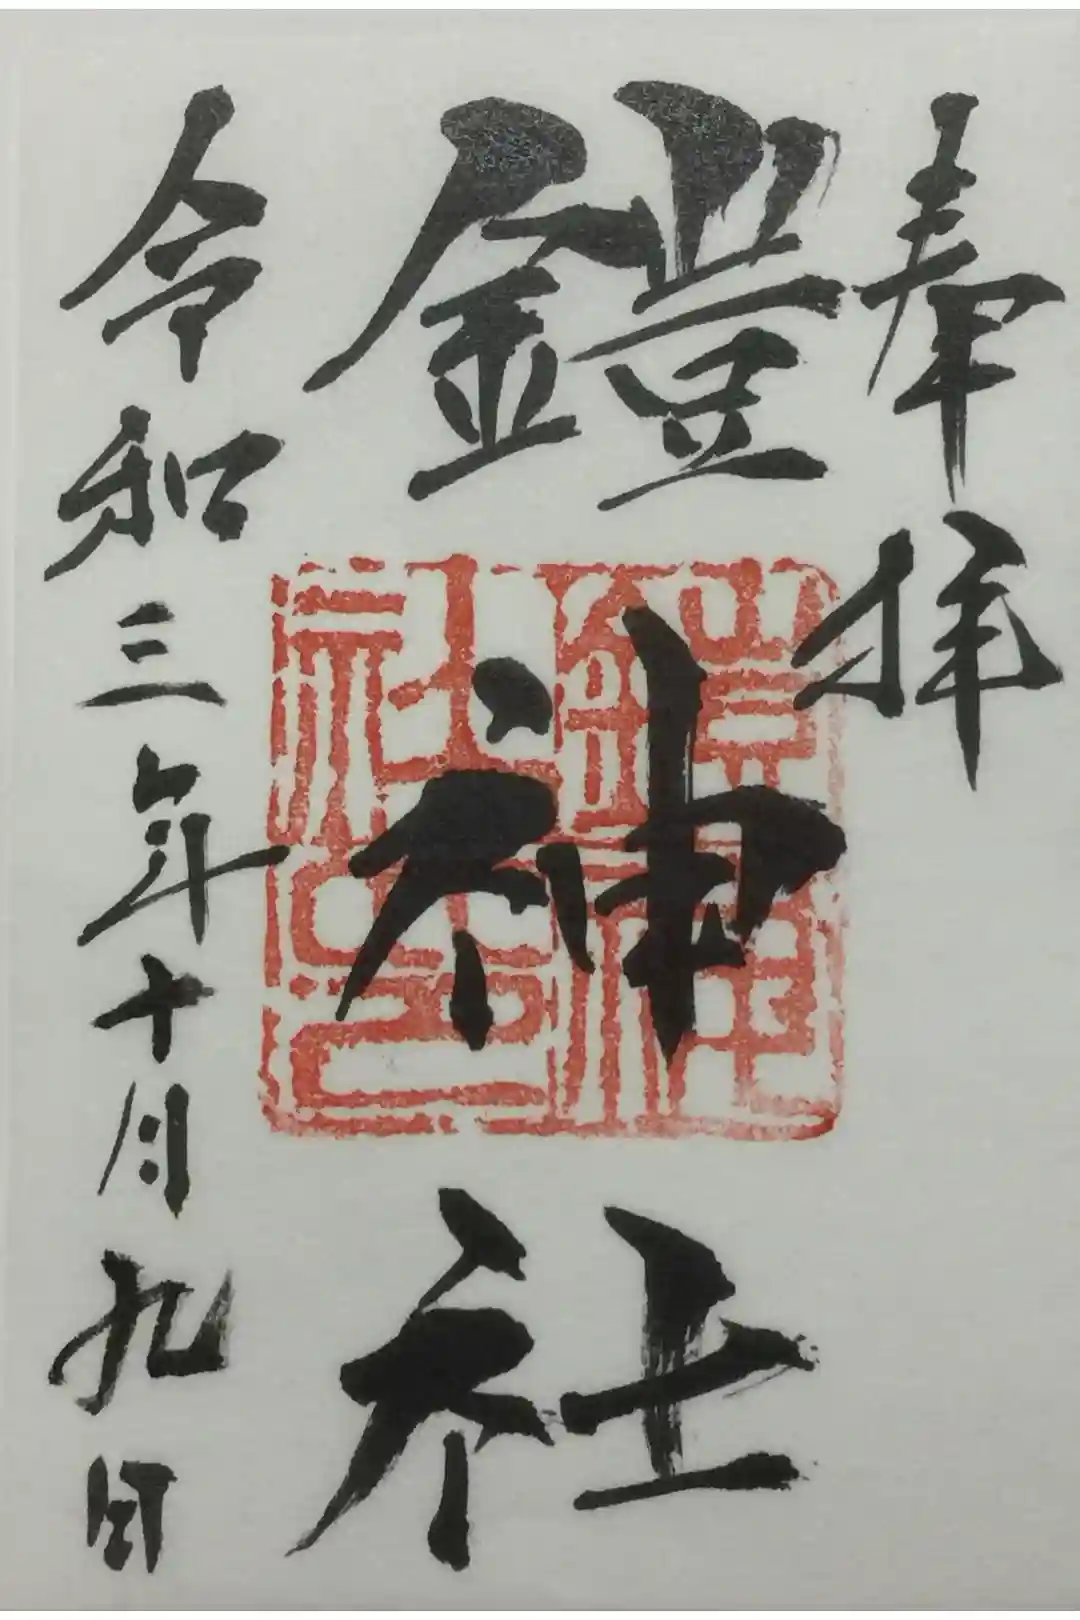 奉拝
鎧神社
令和三年十月九日
鎧神
社印